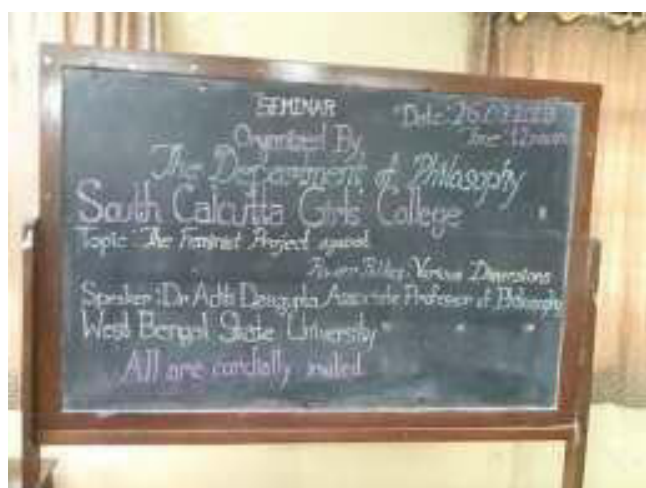 SEMINAR
Date: 26/
Time: 12 noon
Organized By
The Department of Philosophy
South Calcutta Girls College
Topic: The Feminist Project against
Power Politics, Various Dimensions
Speaker: Dr Aditi Dasgupta Associate Professor of Philosophy
West Bengal State University
All are cordially invited